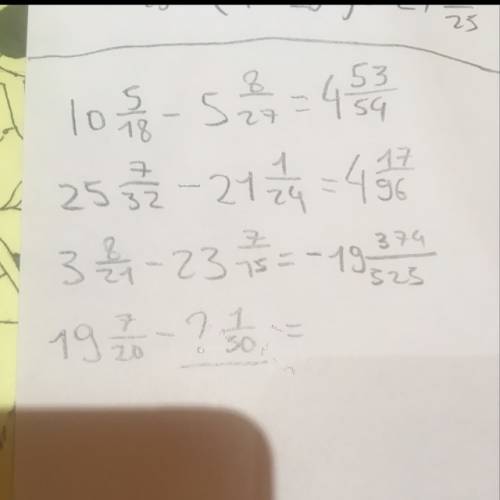 25
10 5/18 - 5 8/27 = 4 53/54
25 7/32 - 21 1/24 = 4 17/96
3 8/21 - 23 7/15 = -19 374/525
19 7/20 - ? 1/50 =